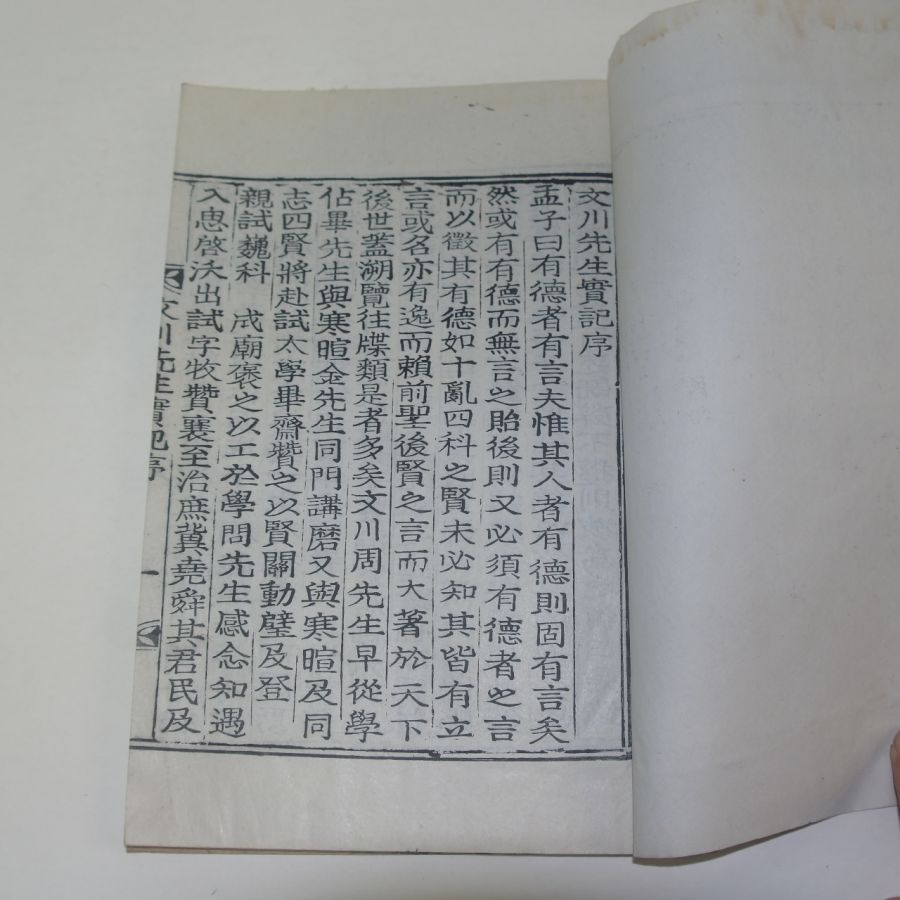 文川先生實記序
孟子曰有德者有言夫惟其人者有德則固有言矣
然或有有德而無言之貽後則又必須有德者之言
而以徵其有德如十亂四科之賢未必知其皆有立
言或名亦有逸而賴前聖後賢之言而大著於天下
後世蓋溯覽往牒類是者多矣文川周先生早從學
佔畢先生與寒暄金先生同門講磨又與寒暄及同
志四賢將赴試太學畢齋贊之以賢關動璧及登
親試巍科 成廟褒之以工於學問先生感念知遇
入思啓沃出試字牧贊襄至治庶冀堯舜其君民及
文川先生實記序 一